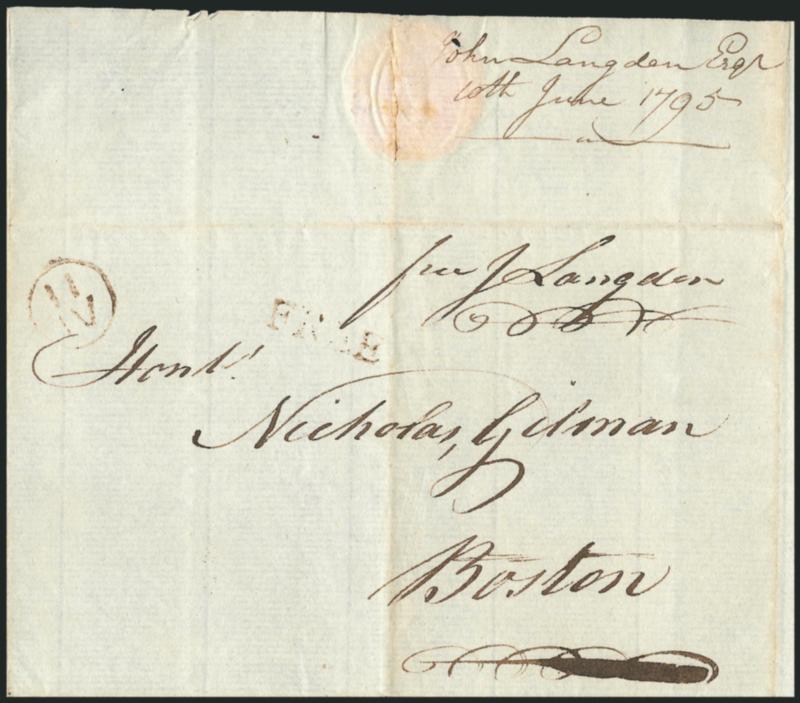 John Langdon Esqr
10th June 1795
free J Langdon
FREE
Honle.
Nicholas Gilman
Boston